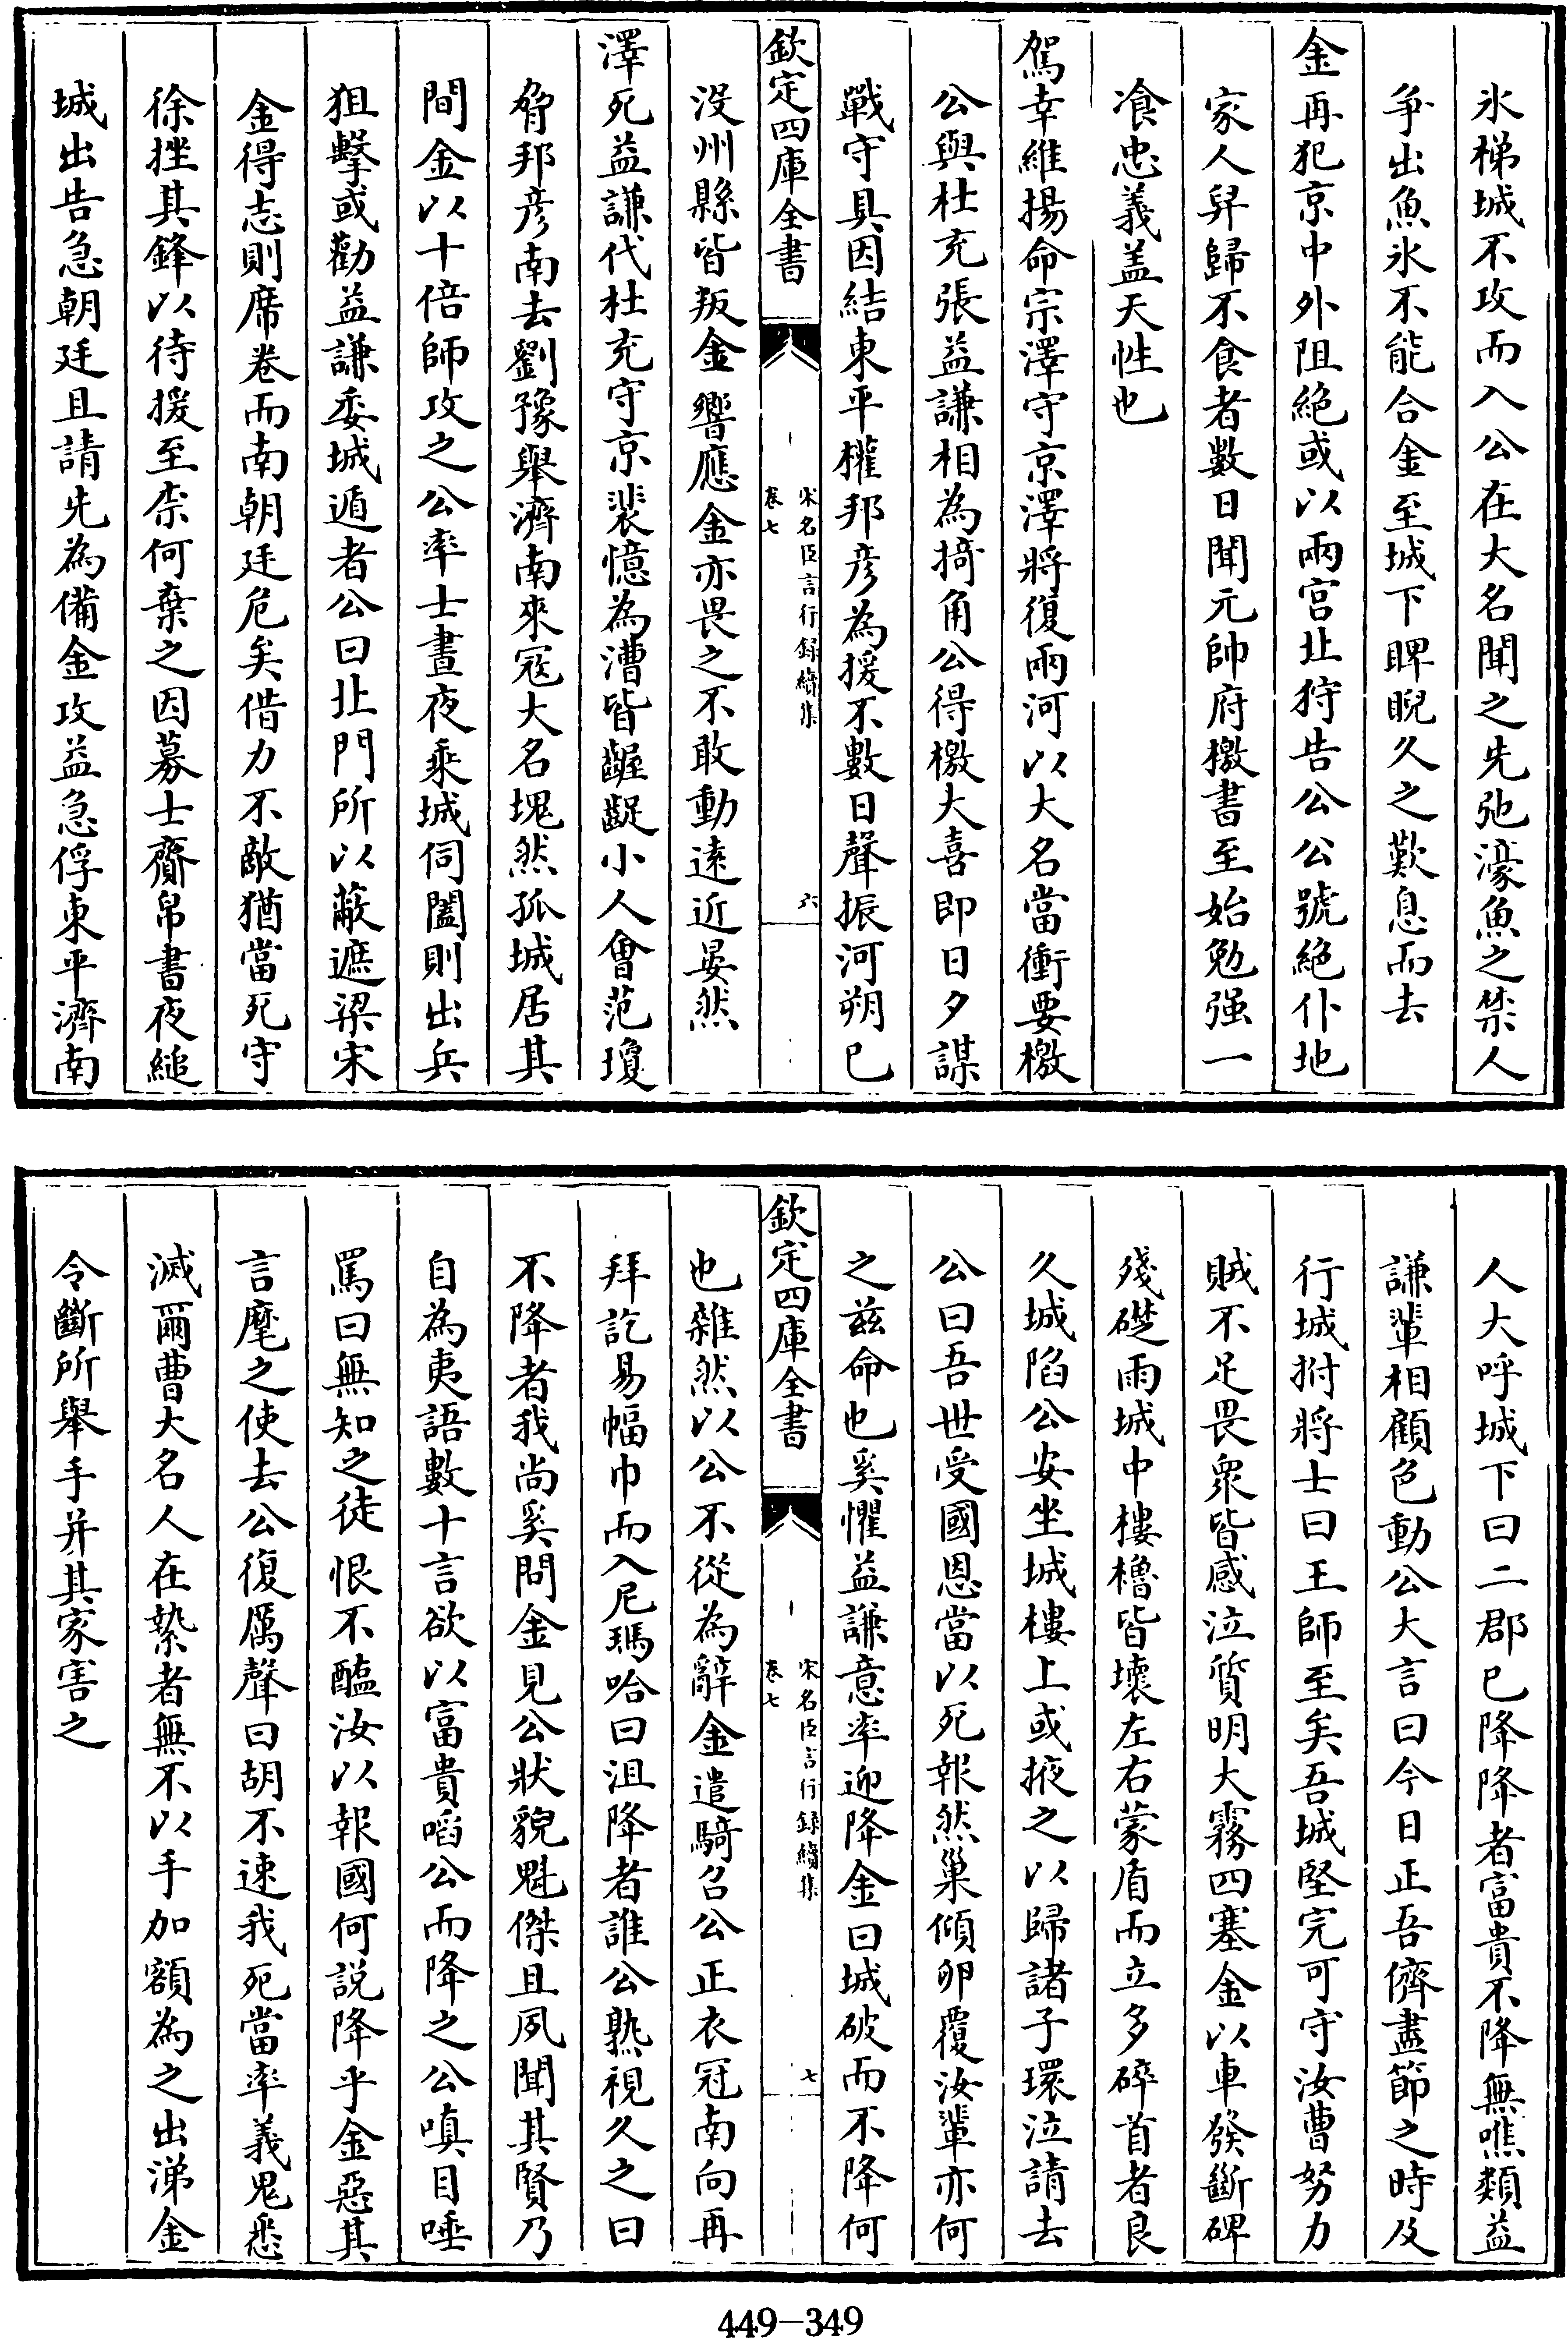 氷梯城不攻而入公在大名聞之先弛濠魚之禁人
爭出魚氷不能合金至城下睥睨久之歎息而去
金再犯京中外阻絶或以兩宫北狩告公公號絶仆地
家人舁歸不食者數日聞元帥府檄書至始勉强一
飡忠義盖天性也
駕幸維揚命宗澤守京澤將復兩河以大名當衝要檄
公與杜充張益謙相為掎角公得檄大喜即日夕謀
戰守具因結東平權邦彦為援不數日聲振河朔已
欽定四庫全書
宋名臣言行録續集
卷七
六
没州縣皆叛金響應金亦畏之不敢動逺近晏然
澤死益謙代杜充守京裴憶為漕皆齷齪小人會范瓊
脅邦彦南去劉豫舉濟南來冦大名塊然孤城居其
間金以十倍師攻之公率士晝夜乘城伺闔則出兵
狙擊或勸益謙委城遁者公曰北門所以蔽遮梁宋
金得志則席卷而南朝廷危矣借力不敵猶當死守
徐挫其鋒以待援至柰何棄之因募士齎帛書夜縋
城出告急朝廷且請先為備金攻益急俘東平濟南
人大呼城下曰二郡已降降者富貴不降無噍類益
謙輩相顧色動公大言曰今日正吾儕盡節之時及
行城拊將士曰王師至矣吾城堅完可守汝曹努力
賊不足畏衆皆感泣質明大霧四塞金以車發斷碑
殘礎雨城中樓櫓皆壞左右蒙盾而立多碎首者良
久城陷公安坐城樓上或掖之以歸諸子環泣請去
公曰吾世受國恩當以死報然巢傾卵覆汝輩亦何
之兹命也奚懼益謙意率迎降金曰城破而不降何
欽定四庫全書
宋名臣言行録續集
卷七
七
也雜然以公不從為辭金遣騎召公公正衣冠南向再
拜訖易幅巾而入尼瑪哈曰沮降者誰公熟視久之曰
不降者我尚奚問金見公狀貌魁傑且夙聞其賢乃
自為夷語數十言欲以富貴啗公而降之公嗔目唾
罵曰無知之徒恨不醢汝以報國何説降乎金惡其
言麾之使去公復厲聲曰胡不速我死當率義鬼悉
滅爾曹大名人在縶者無不以手加額為之出涕金
令斷所舉手并其家害之
449-349